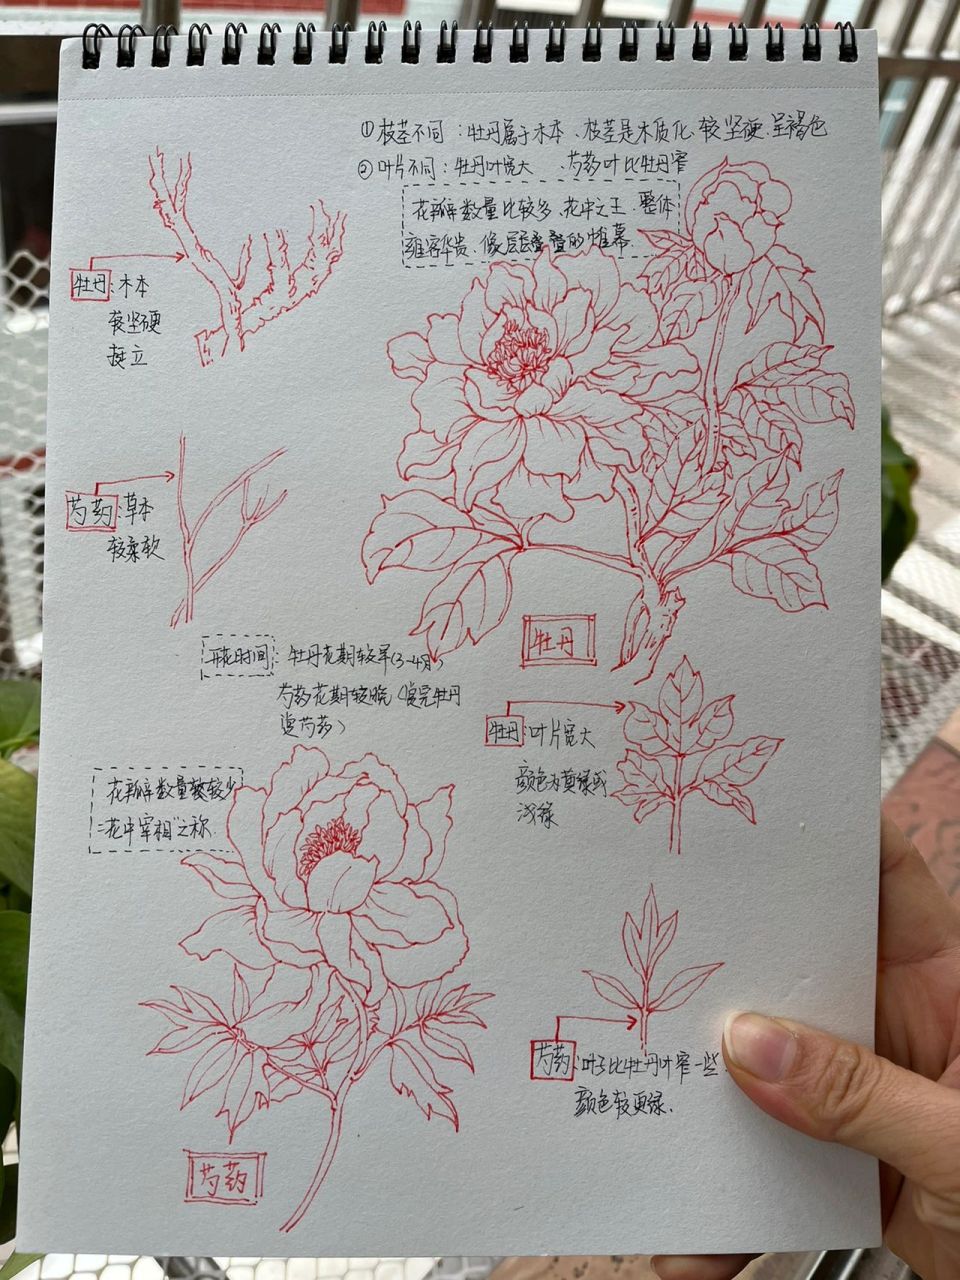 ①枝茎不同：牡丹属于木本、枝茎是木质化、较坚硬、呈褐色
②叶片不同：牡丹叶宽大、芍药叶比牡丹窄
花瓣数量比较多、花中之王、整体
雍容华贵、像层层叠叠的帷幕.
牡丹：木本
较坚硬
挺立
芍药：草本
较柔软
开花时间：牡丹花期较早(3-4月)
芍药花期较晚(赏完牡丹
赏芍药)
牡丹
牡丹：叶片宽大
颜色为黄绿或
浅绿
花瓣数量较少
"花中宰相"之称.
芍药：叶子比牡丹叶窄一些.
颜色较更绿.
芍药